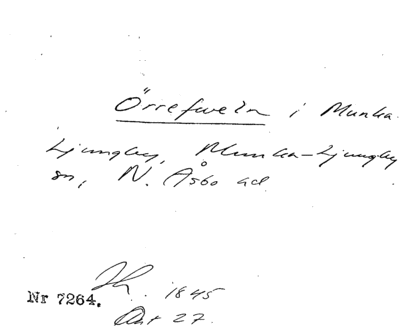 Örrefveln i Munka
Ljungby, Munka-Ljungby
sn, N. Åsbo hd
1845
Nr 7264.
Akt 27.